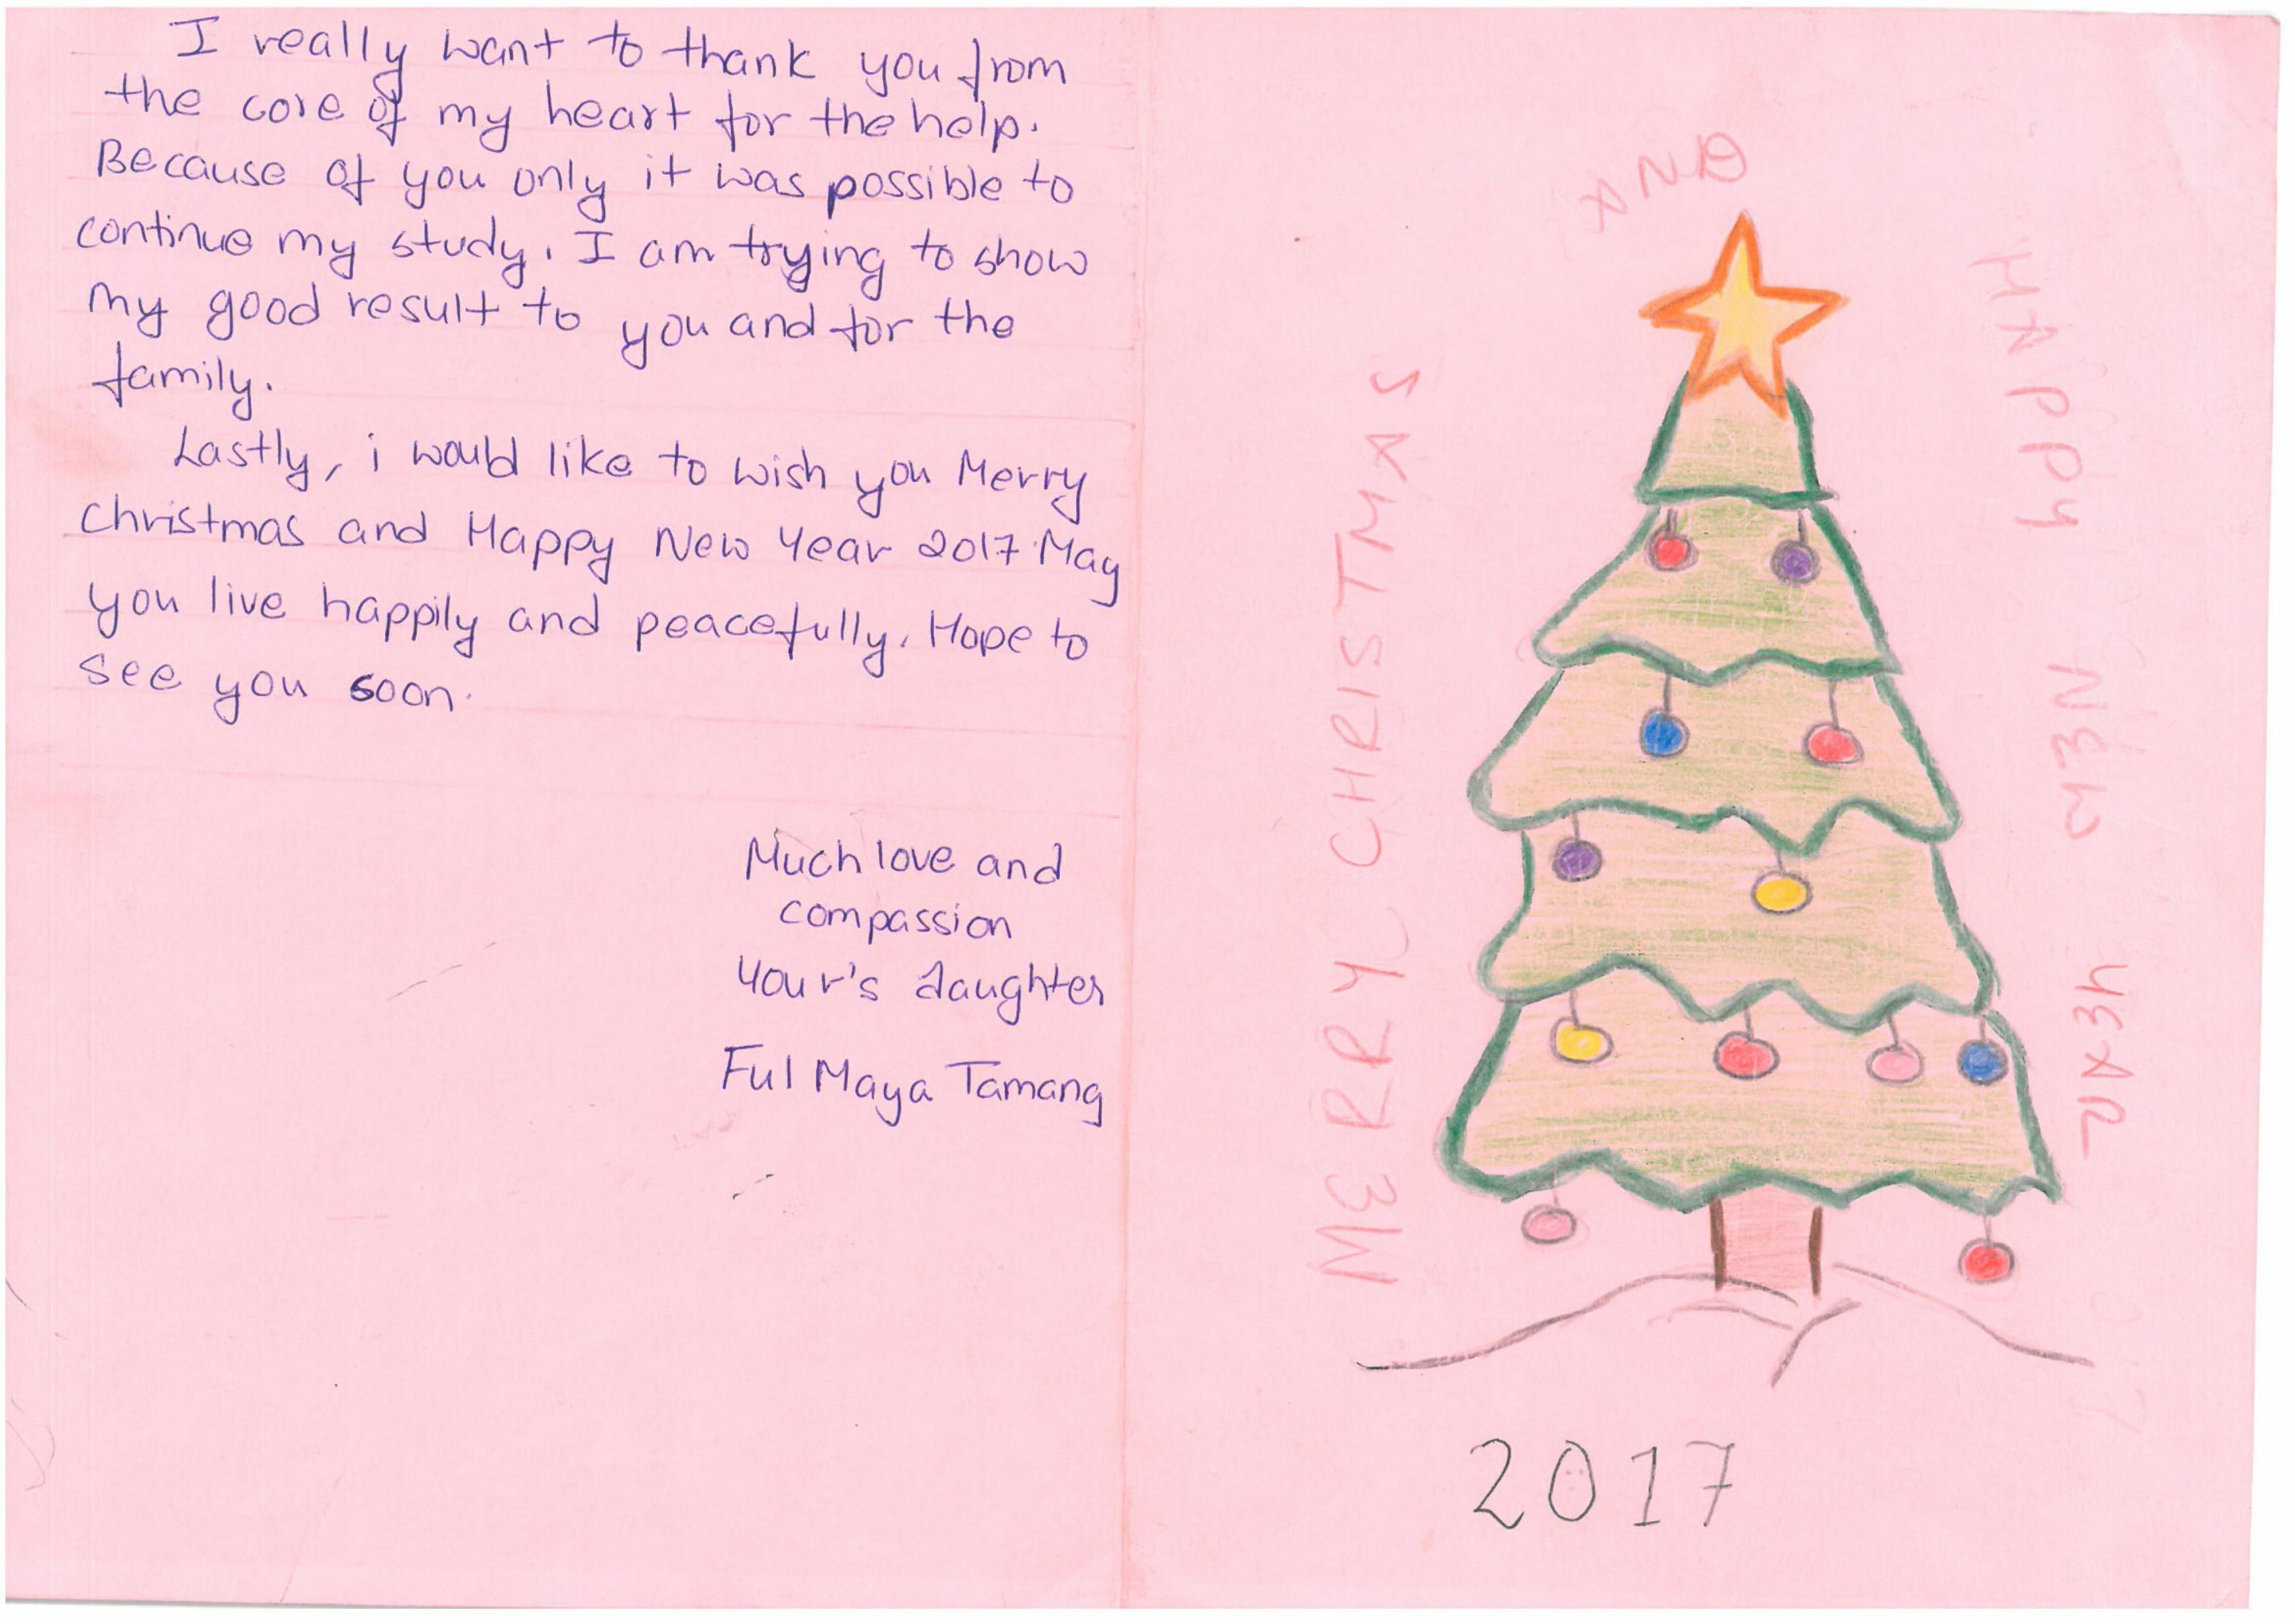 I really want to thank you from
the core of my heart for the help.
Because of you only it was possible to
continue my study. I am trying to show
my good result to you and for the
family.
Lastly, i would like to wish you Merry
Christmas and Happy New Year 2017 May
you live happily and peacefully. Hope to
see you soon.
Much love and
compassion
Your's daughter
Ful Maya Tamang
MERRY CHRISTMAS
AND
HAPPY NEW YEAR
2017